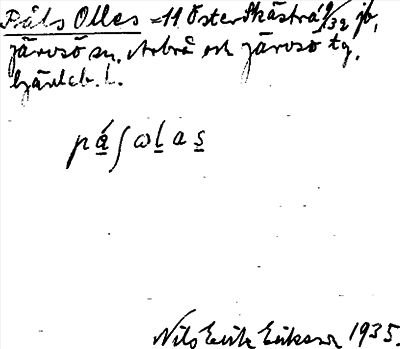 Påls Olles - 11 Österskästra 9/32 jb,
Järvsö sn, Arbrå och Järvsö tg,
Gävleb. l.
påʃωlas
Nils Erik Eriksson 1935.